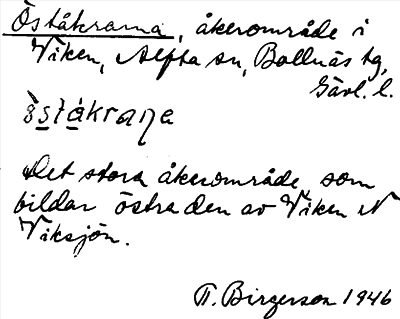 Öståkrarna, åkerområde i
Viken, Alfta sn, Bollnäs tg,
Gävl. l.
östákraɳa
Det stora åkerområde som
bildar östra den av Viken N
Viksjön.
T. Birgerson 1946